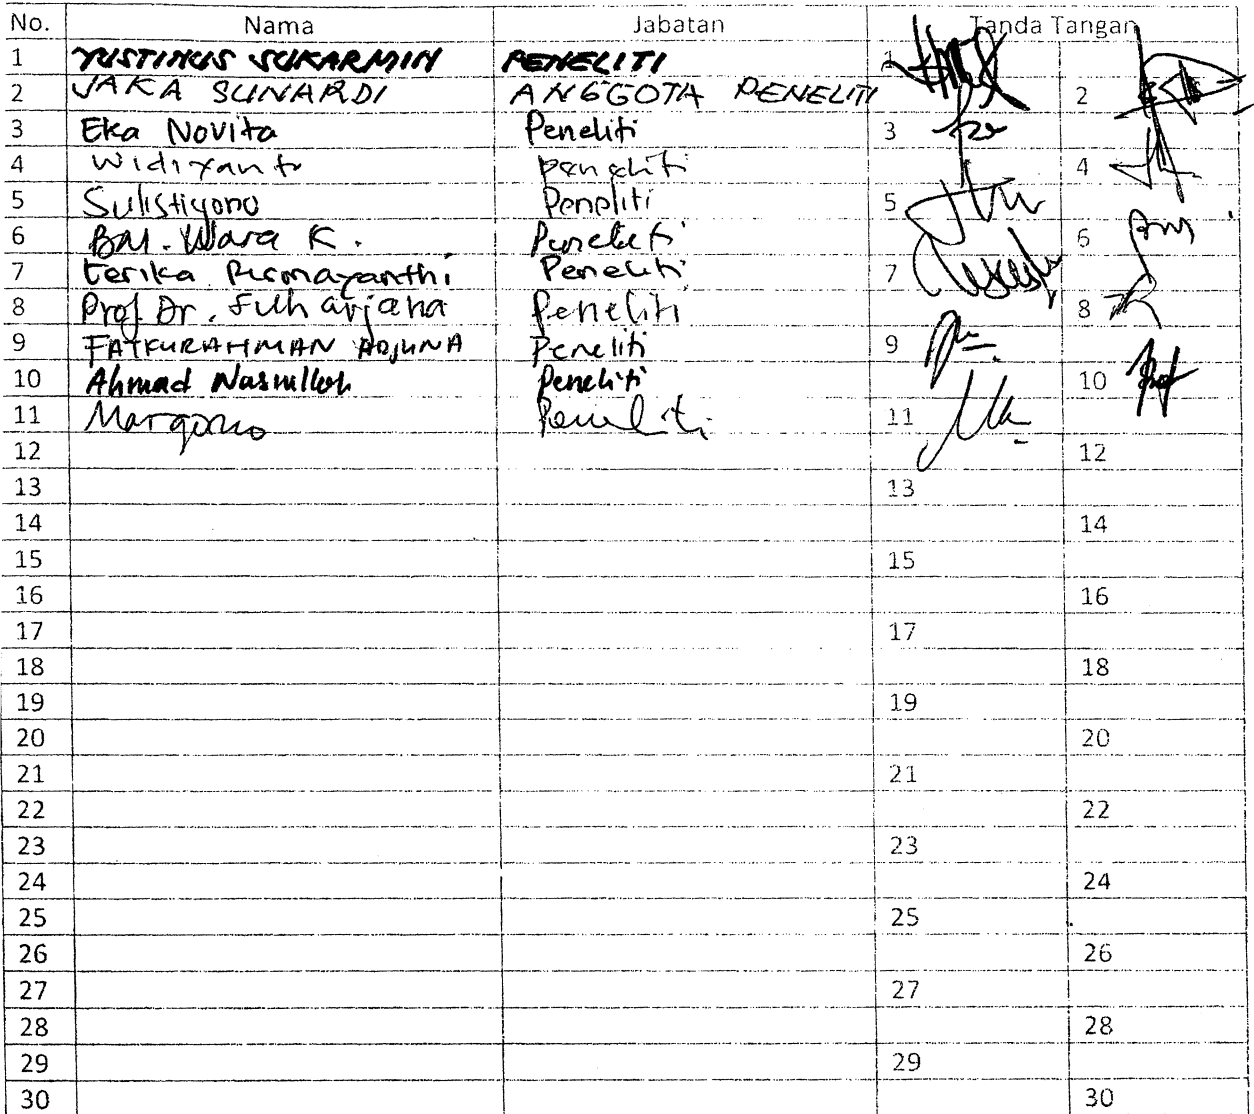 No. Nama Jabatan Tanda Tangan
1 YUSTINUS SUKARMIN PENELITI 1
2 JAKA SUNARDI ANGGOTA PENELITI 2
3 Eka Novita Peneliti 3
4 Widiyanto peneliti 4
5 Sulistiyono Peneliti 5
6 BM. Wara K. Peneliti 6
7 Cerika Rismayanthi Peneliti 7
8 Prof. Dr. Suharjana Peneliti 8
9 FATKURAHMAN ARJUNA Peneliti 9
10 Ahmad Nasrulloh Peneliti 10
11 Margono Peneliti 11
12 12
13 13
14 14
15 15
16 16
17 17
18 18
19 19
20 20
21 21
22 22
23 23
24 24
25 25
26 26
27 27
28 28
29 29
30 30